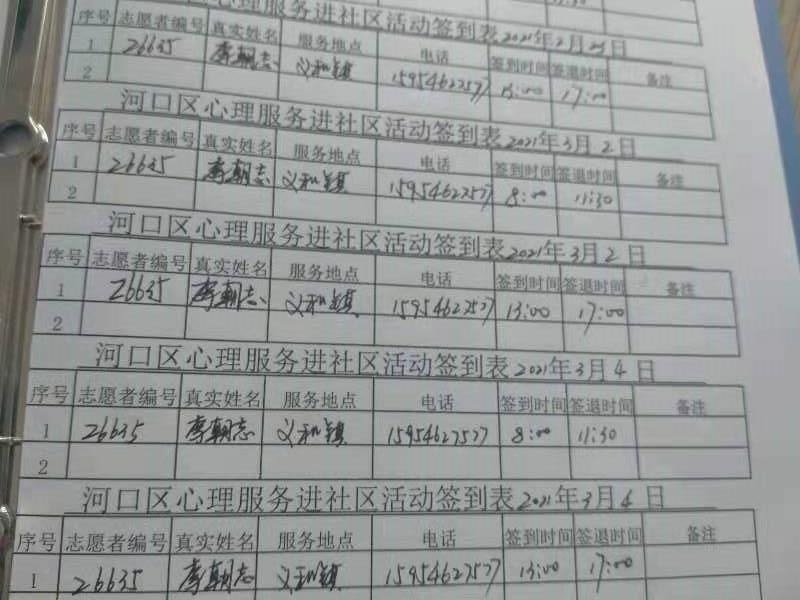 河口区心理服务进社区活动签到表2021年2月25日
序号 志愿者编号 真实姓名 服务地点 电话 签到时间 签退时间 备注
1 26635 李朝志 义和镇 15954627577 13:00 17:00
2
河口区心理服务进社区活动签到表2021年3月2日
序号 志愿者编号 真实姓名 服务地点 电话 签到时间 签退时间 备注
1 26635 李朝志 义和镇 15954627577 8:00 11:30
2
河口区心理服务进社区活动签到表2021年3月2日
序号 志愿者编号 真实姓名 服务地点 电话 签到时间 签退时间 备注
1 26635 李朝志 义和镇 15954627577 13:00 17:00
2
河口区心理服务进社区活动签到表2021年3月4日
序号 志愿者编号 真实姓名 服务地点 电话 签到时间 签退时间 备注
1 26635 李朝志 义和镇 15954627577 8:00 11:30
2
河口区心理服务进社区活动签到表2021年3月4日
序号 志愿者编号 真实姓名 服务地点 电话 签到时间 签退时间 备注
1 26635 李朝志 义和镇 15954627577 13:00 17:00